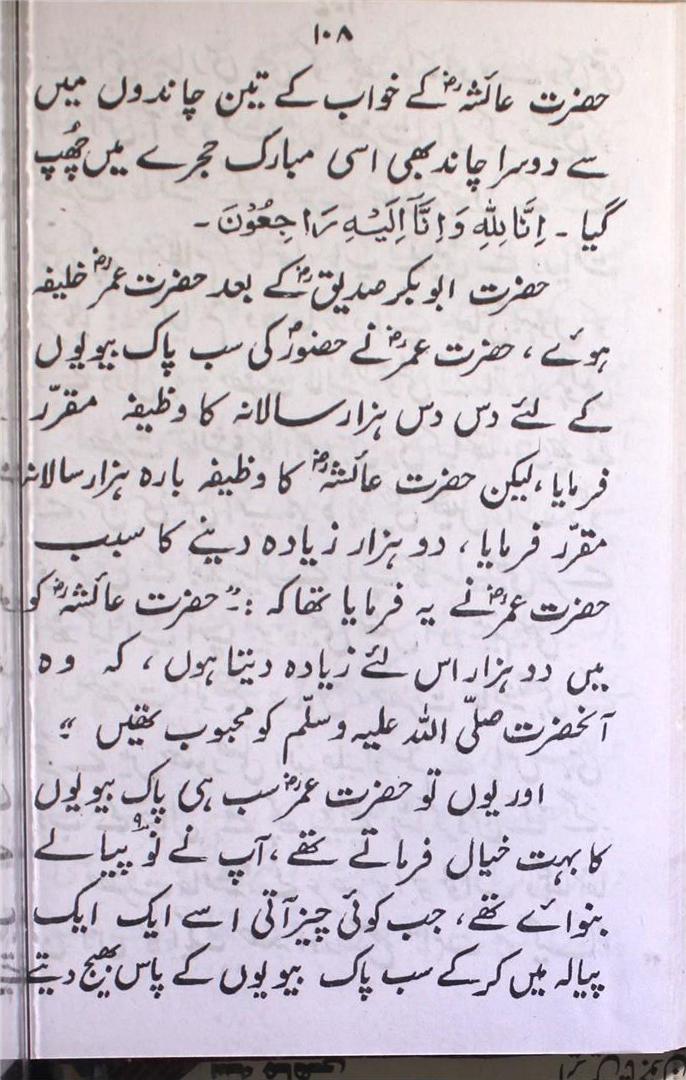 ۱۰۸
حضرت عائشہؓ کے خواب کے تین چاندوں میں
سے دوسرا چاند بھی اسی مبارک حجرے میں چُھپ
گیا ۔ اِنَّا لِلّٰہِ وَاِنَّآ اِلَیْہِ رَاجِعُوْنَ ۔
حضرت ابوبکر صدیقؓ کے بعد حضرت عمرؓ خلیفہ
ہوئے ، حضرت عمرؓ نے حضورؐ کی سب پاک بیویوں
کے لئے دس دس ہزار سالانہ کا وظیفہ مقرّر
فرمایا ، لیکن حضرت عائشہؓ کا وظیفہ بارہ ہزار سالانہ
مقرّر فرمایا ، دو ہزار زیادہ دینے کا سبب
حضرت عمرؓ نے یہ فرمایا تھا کہ :۔ ” حضرت عائشہؓ کو
میں دو ہزار اس لئے زیادہ دیتا ہوں ، کہ وہ
آنحضرت صلّی اللہ علیہ وسلّم کو محبوب تھیں “
اور یوں تو حضرت عمرؓ سب ہی پاک بیویوں
کا بہت خیال فرماتے تھے ، آپ نے نو۹ پیالے
بنوائے تھے ، جب کوئی چیز آتی اسے ایک ایک
پیالہ میں کر کے سب پاک بیویوں کے پاس بھیج دیتے